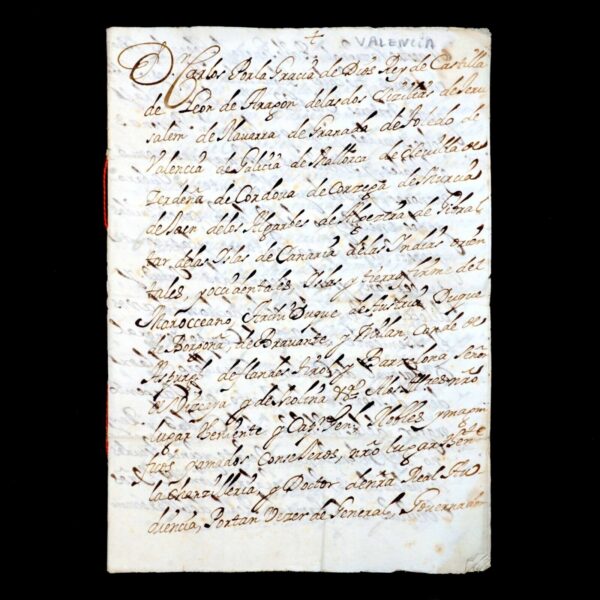 +
VALENCIA
Dn. Carlos Por la Gracia de Dios Rey de Castilla
de Leon de Aragon de las dos Cizilias de Jeru
salem de Navarra de Granada de Toledo de
Valencia de Galicia de Mallorca de Sevilla de
Zerdeña de Cordova de Corzega de Murcia
de Jaen de los Algarbes de Algezira de Gibral
tar de las Islas de Canaria de las Yndias orien
tales, y occidentales, Islas y tierra firme del
Mar occeano, Archi Duque de Austria Duque
de Borgoña, de Bravante, y Milan, Conde de
de y Barzelona Señor
de Vizcaya y de Molina
lugar theniente y Capn. Genl. Nobles, magni
ficos y amados Conselleros, nro lugar thente
la chanzilleria, y Doctor de nra Real Au
diencia, Portan Vezes de General, Governado